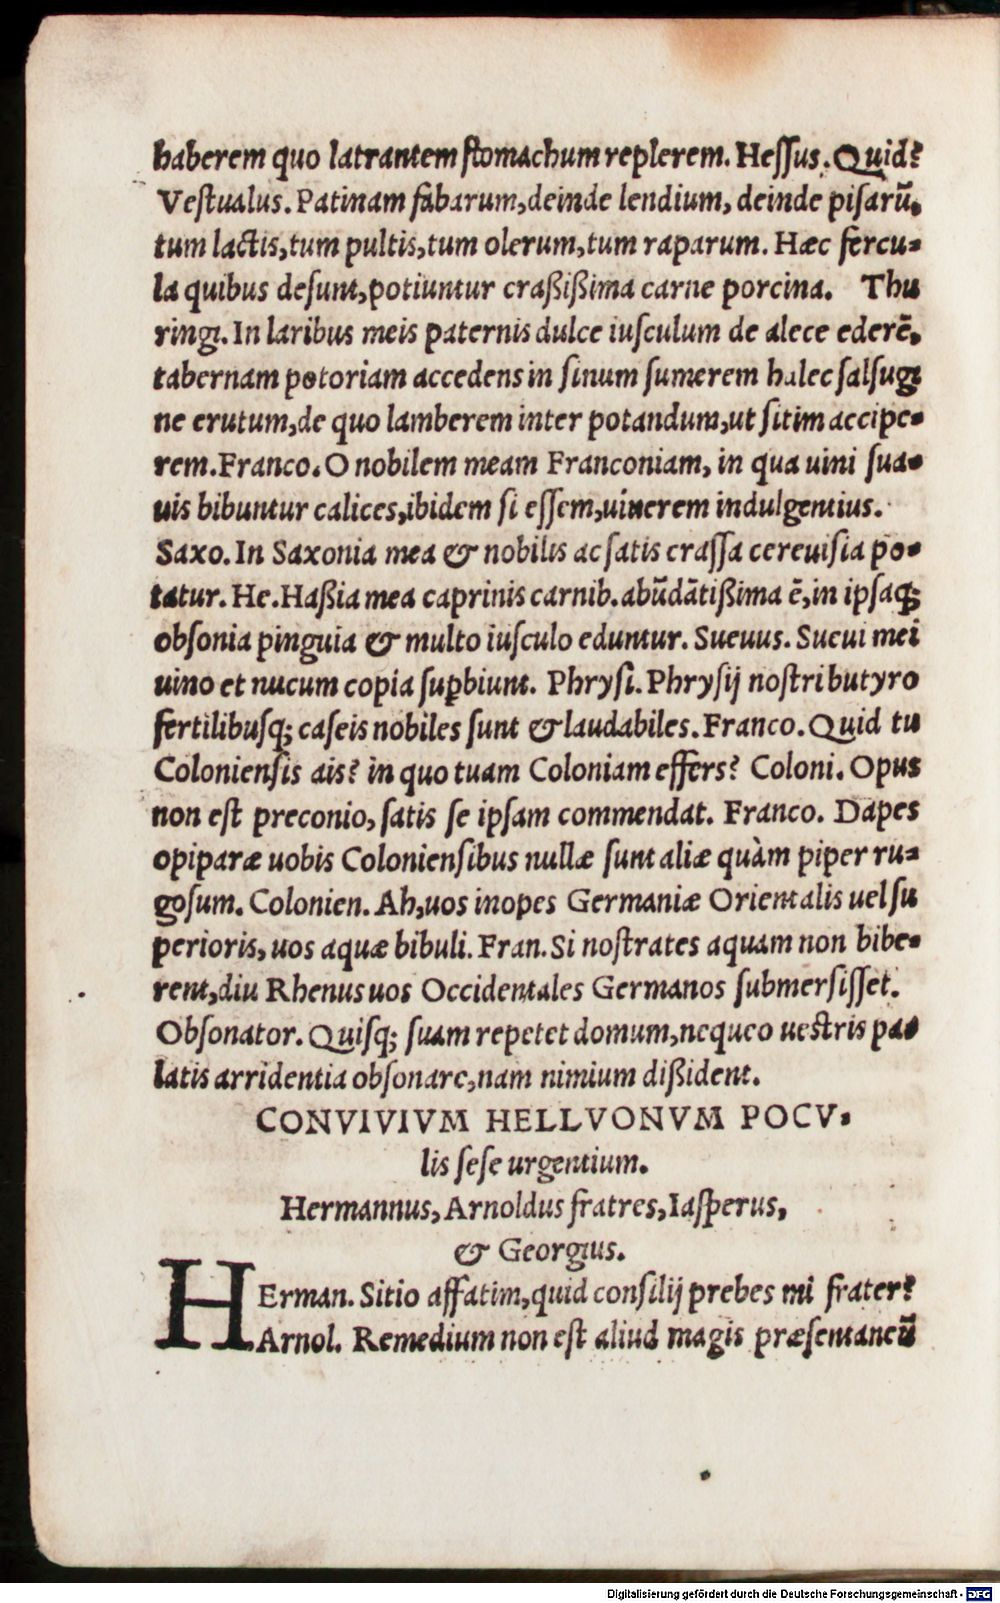 haberem quo latrantem ſtomachum replerem. Heſſus. Quid?
Veſtualus. Patinam fabarum, deinde lendium, deinde piſarū,
tum lactis, tum pultis, tum olerum, tum raparum. Hæc fercu-
la quibus deſunt, potiuntur craßißima carne porcina. Thu
ringi. In laribus meis paternis dulce iuſculum de alece ederē,
tabernam potoriam accedens in ſinum ſumerem halec ſalſugi
ne erutum, de quo lamberem inter potandum, ut ſitim accipe-
rem. Franco. O nobilem meam Franconiam, in qua uini ſua-
uis bibuntur calices, ibidem ſi eſſem, uiuerem indulgentius.
Saxo. In Saxonia mea & nobilis ac ſatis craſſa cereuiſia po-
tatur. He. Haßia mea caprinis carnib. abūdātißima ē, in ipſaq;
obſonia pinguia & multo iuſculo eduntur. Sueuus. Sueui mei
uino et nucum copia ſuꝑbiunt. Phryſi. Phryſij noſtri butyro
fertilibuſq; caſeis nobiles ſunt & laudabiles. Franco. Quid tu
Colonienſis ais? in quo tuam Coloniam effers? Coloni. Opus
non eſt preconio, ſatis ſe ipſam commendat. Franco. Dapes
opiparæ uobis Colonienſibus nullæ ſunt aliæ quàm piper ru-
goſum. Colonien. Ah, uos inopes Germaniæ Orientalis uel ſu
perioris, uos aquæ bibuli. Fran. Si noſtrates aquam non bibe-
rent, diu Rhenus uos Occidentales Germanos ſubmerſiſſet.
Obſonator. Quiſq; ſuam repetet domum, nequeo ueſtris pa-
latis arridentia obſonare, nam nimium dißident.
CONVIVIVM HELLVONVM POCV-
lis ſeſe urgentium.
Hermannus, Arnoldus fratres, Iaſperus,
& Georgius.
HErman. Sitio affatim, quid conſilij prebes mi frater?
Arnol. Remedium non eſt aliud magis præſentaneū
Digitalisierung gefördert durch die Deutsche Forschungsgemeinschaft - DFG